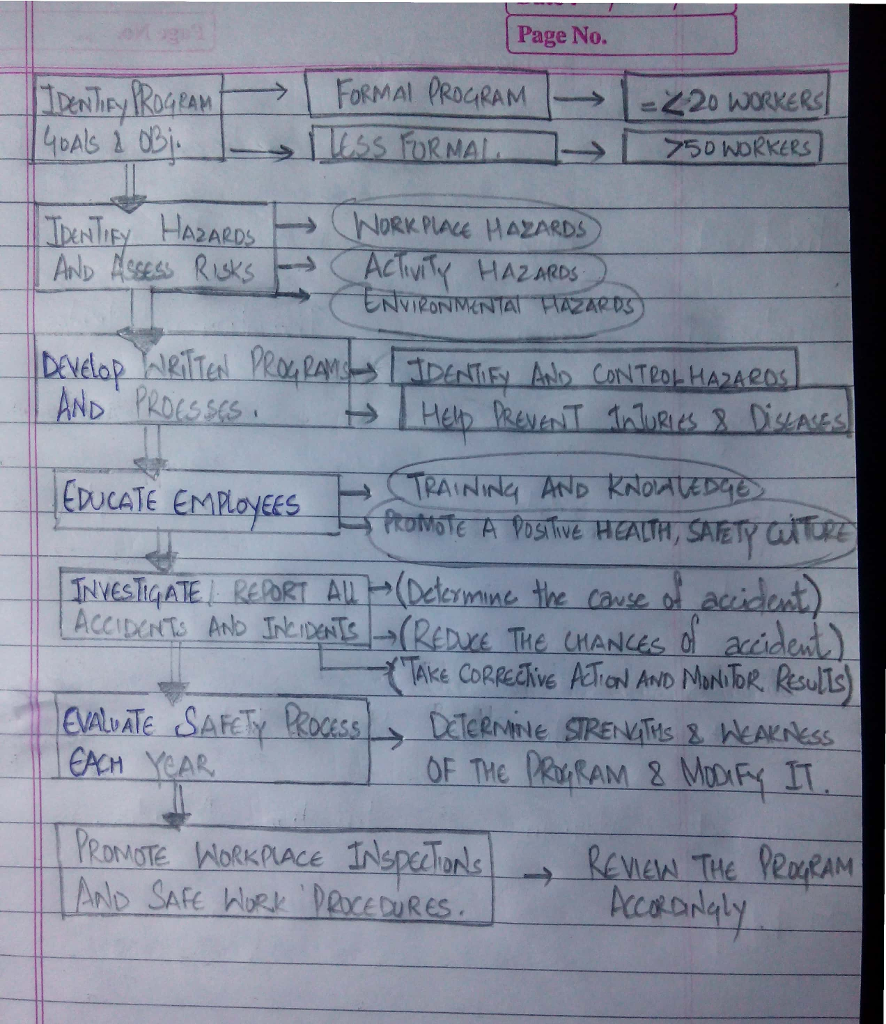 Page No.
IDENTIFY PROGRAM
GOALS & OBJ.
FORMAL PROGRAM
=<20 WORKERS
LESS FORMAL.
>50 WORKERS
IDENTIFY HAZARDS
AND ASSESS RISKS
WORKPLACE HAZARDS
ACTIVITY HAZARDS
ENVIRONMENTAL HAZARDS
DEVELOP WRITTEN PROGRAMS
AND PROESSES.
IDENTIFY AND CONTROL HAZARDS
HELP PREVENT INJURIES & DISEASES
EDUCATE EMPLOYEES
TRAINING AND KNOWLEDGE
PROMOTE A POSITIVE HEALTH, SAFETY CULTURE
INVESTIGATE / REPORT ALL
ACCIDENTS AND INCIDENTS
(Determine the cause of accident)
(REDUCE THE CHANCES of accident)
(TAKE CORRECTIVE ACTION AND MONITOR RESULTS)
EVALUATE SAFETY PROCESS
EACH YEAR
DETERMINE STRENGTHS & WEAKNESS
OF THE PROGRAM & MODIFY IT.
PROMOTE WORKPLACE INSPECTIONS
AND SAFE WORK PROCEDURES.
REVIEW THE PROGRAM
ACCORDINGLY